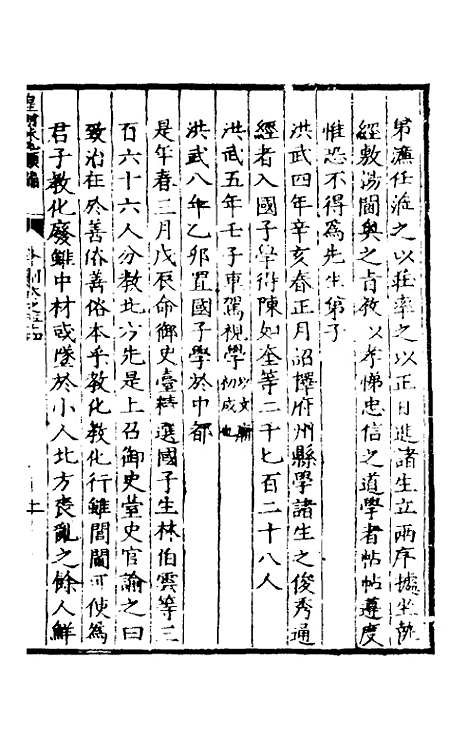 弟濂任淮之以莊率之以正日進諸生立兩序據坐執
經敷湯闔奧之㫖敎以孝悌忠信之道學者帖帖遵度
惟恐不得爲先生第子
洪武四年辛亥春正月詔擇府州縣學諸生之俊秀通
經者入國子學得陳如奎等二千七百二十八人
洪武五年壬子車駕視學以文廟初成也
洪武八年乙卯置國子學於中都
是年春三月戊辰命御史臺精選國子生林伯雲等三
百六十六人分敎北方先是上召御史堂史官諭之曰
致治在於善俗善俗本乎敎化敎化行雖閭閻可使爲
君子敎化廢雖中材或墜於小人北方喪亂之餘人鮮